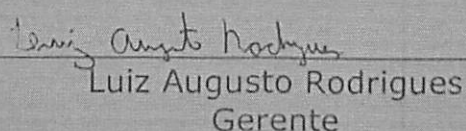 Luiz Augusto Rodrigues
Luiz Augusto Rodrigues
Gerente